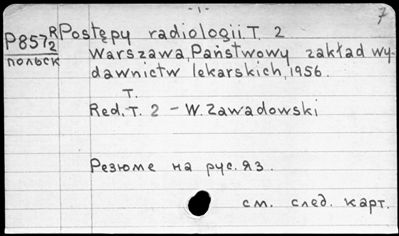 - 1 -
7
P857/2 R Postępy radiologii. T. 2
польск
Warszawa, Państwowy zakład wy-
dawnictw lekarskich, 1956.
т.
Red. T. 2 - W. Zawadowski
Резюме на рус. яз.
см. след. карт.